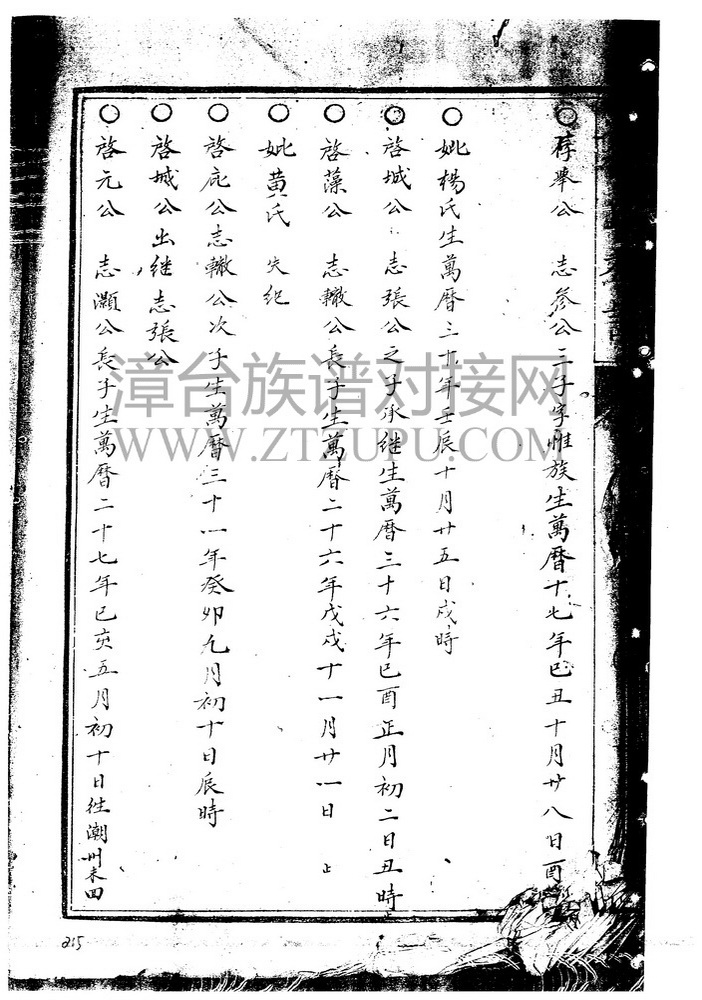 ○存舉公 志參公三子字惟族生萬曆十七年己丑十月廿八日酉
○妣楊氏生萬曆二十年壬辰十月廿五日戌時
○啓城公 志張公之子承継生萬曆三十六年己酉正月初二日丑時止
○啓藻公 志轍公長子生萬曆二十六年戊戌十一月廿一日 止
○妣黄氏 失紀
○啓庇公志轍公次子生萬曆三十一年癸卯九月初十日辰時
○啓城公出継志張公
○啓元公 志灝公長子生萬曆二十七年己亥五月初十日往潮州未回
漳台族谱对接网
WWW.ZTZUPU.COM
215